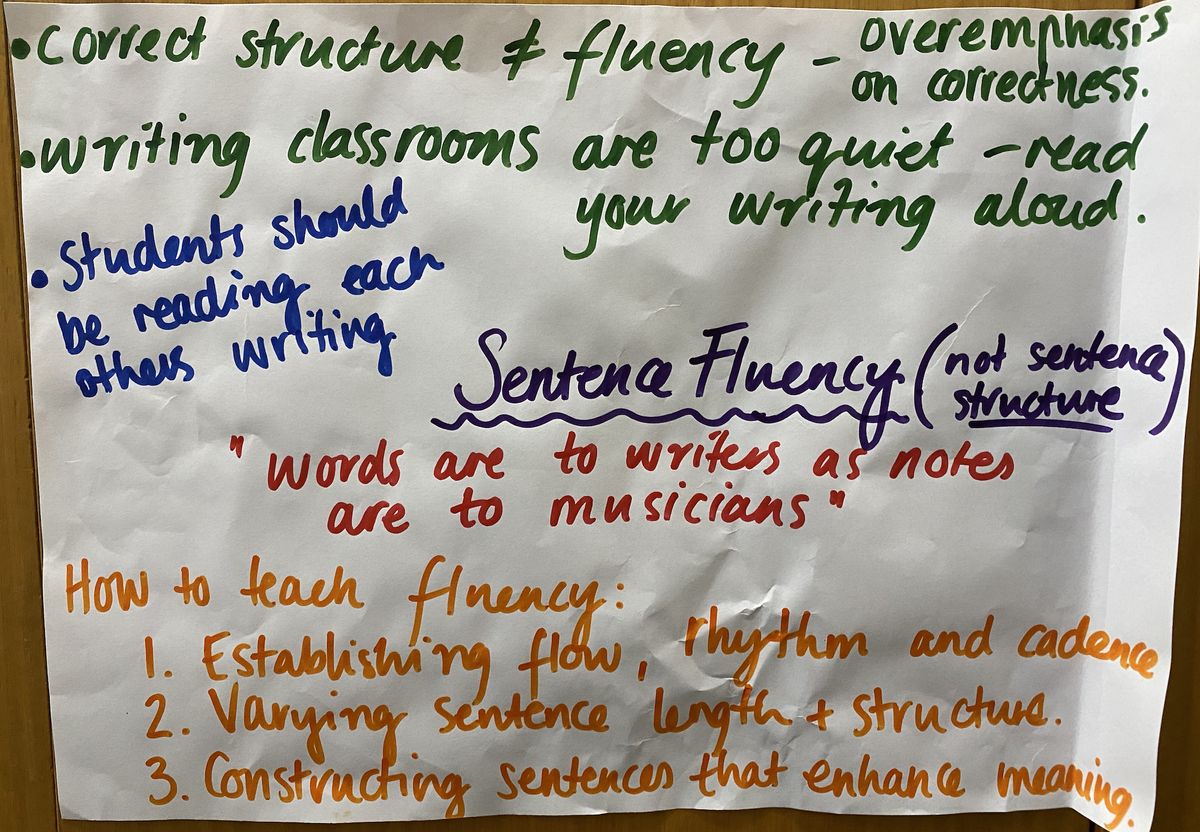 • Correct structure ≠ fluency – overemphasis
on correctness.
• Writing classrooms are too quiet – read
your writing aloud.
• Students should
be reading each
others writing
Sentence Fluency (not sentence
structure)
"Words are to writers as notes
are to musicians"
How to teach fluency:
1. Establishing flow, rhythm and cadence
2. Varying sentence length + structure.
3. Constructing sentences that enhance meaning.